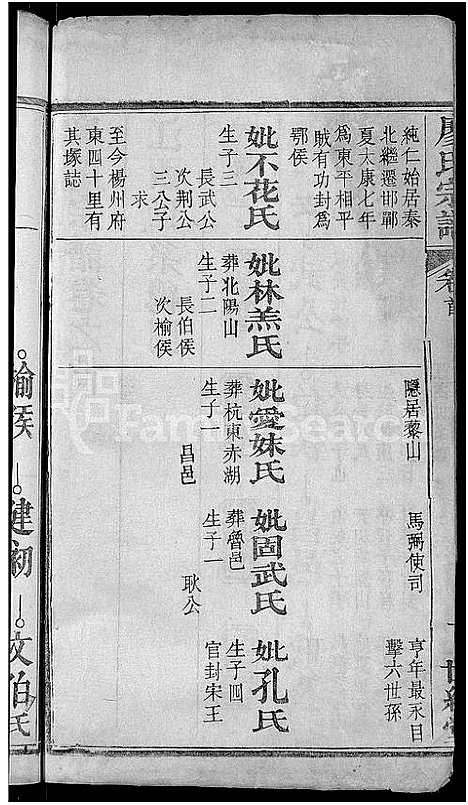 廖氏宗譜
卷首
世紀
純仁始居秦
北繼遷邯鄲
夏太康七年
為東平相平
賊有功封為
鄂侯
妣不花氏
生子三
長武公
次荆公
三公子
求
至今楊州府
東四十里有
其塚誌
妣林羔氏
葬北陽山
生子二
長伯侯
次榆侯
隱居藜山
妣愛妹氏
葬杭東赤湖
生子一
昌邑
馬弼使司
妣固武氏
葬魯邑
生子一
耿公
亨年最永目
擊六世孫
妣孔氏
生子四
官封宋王
榆侯
建初
文伯氏
FamilySearch